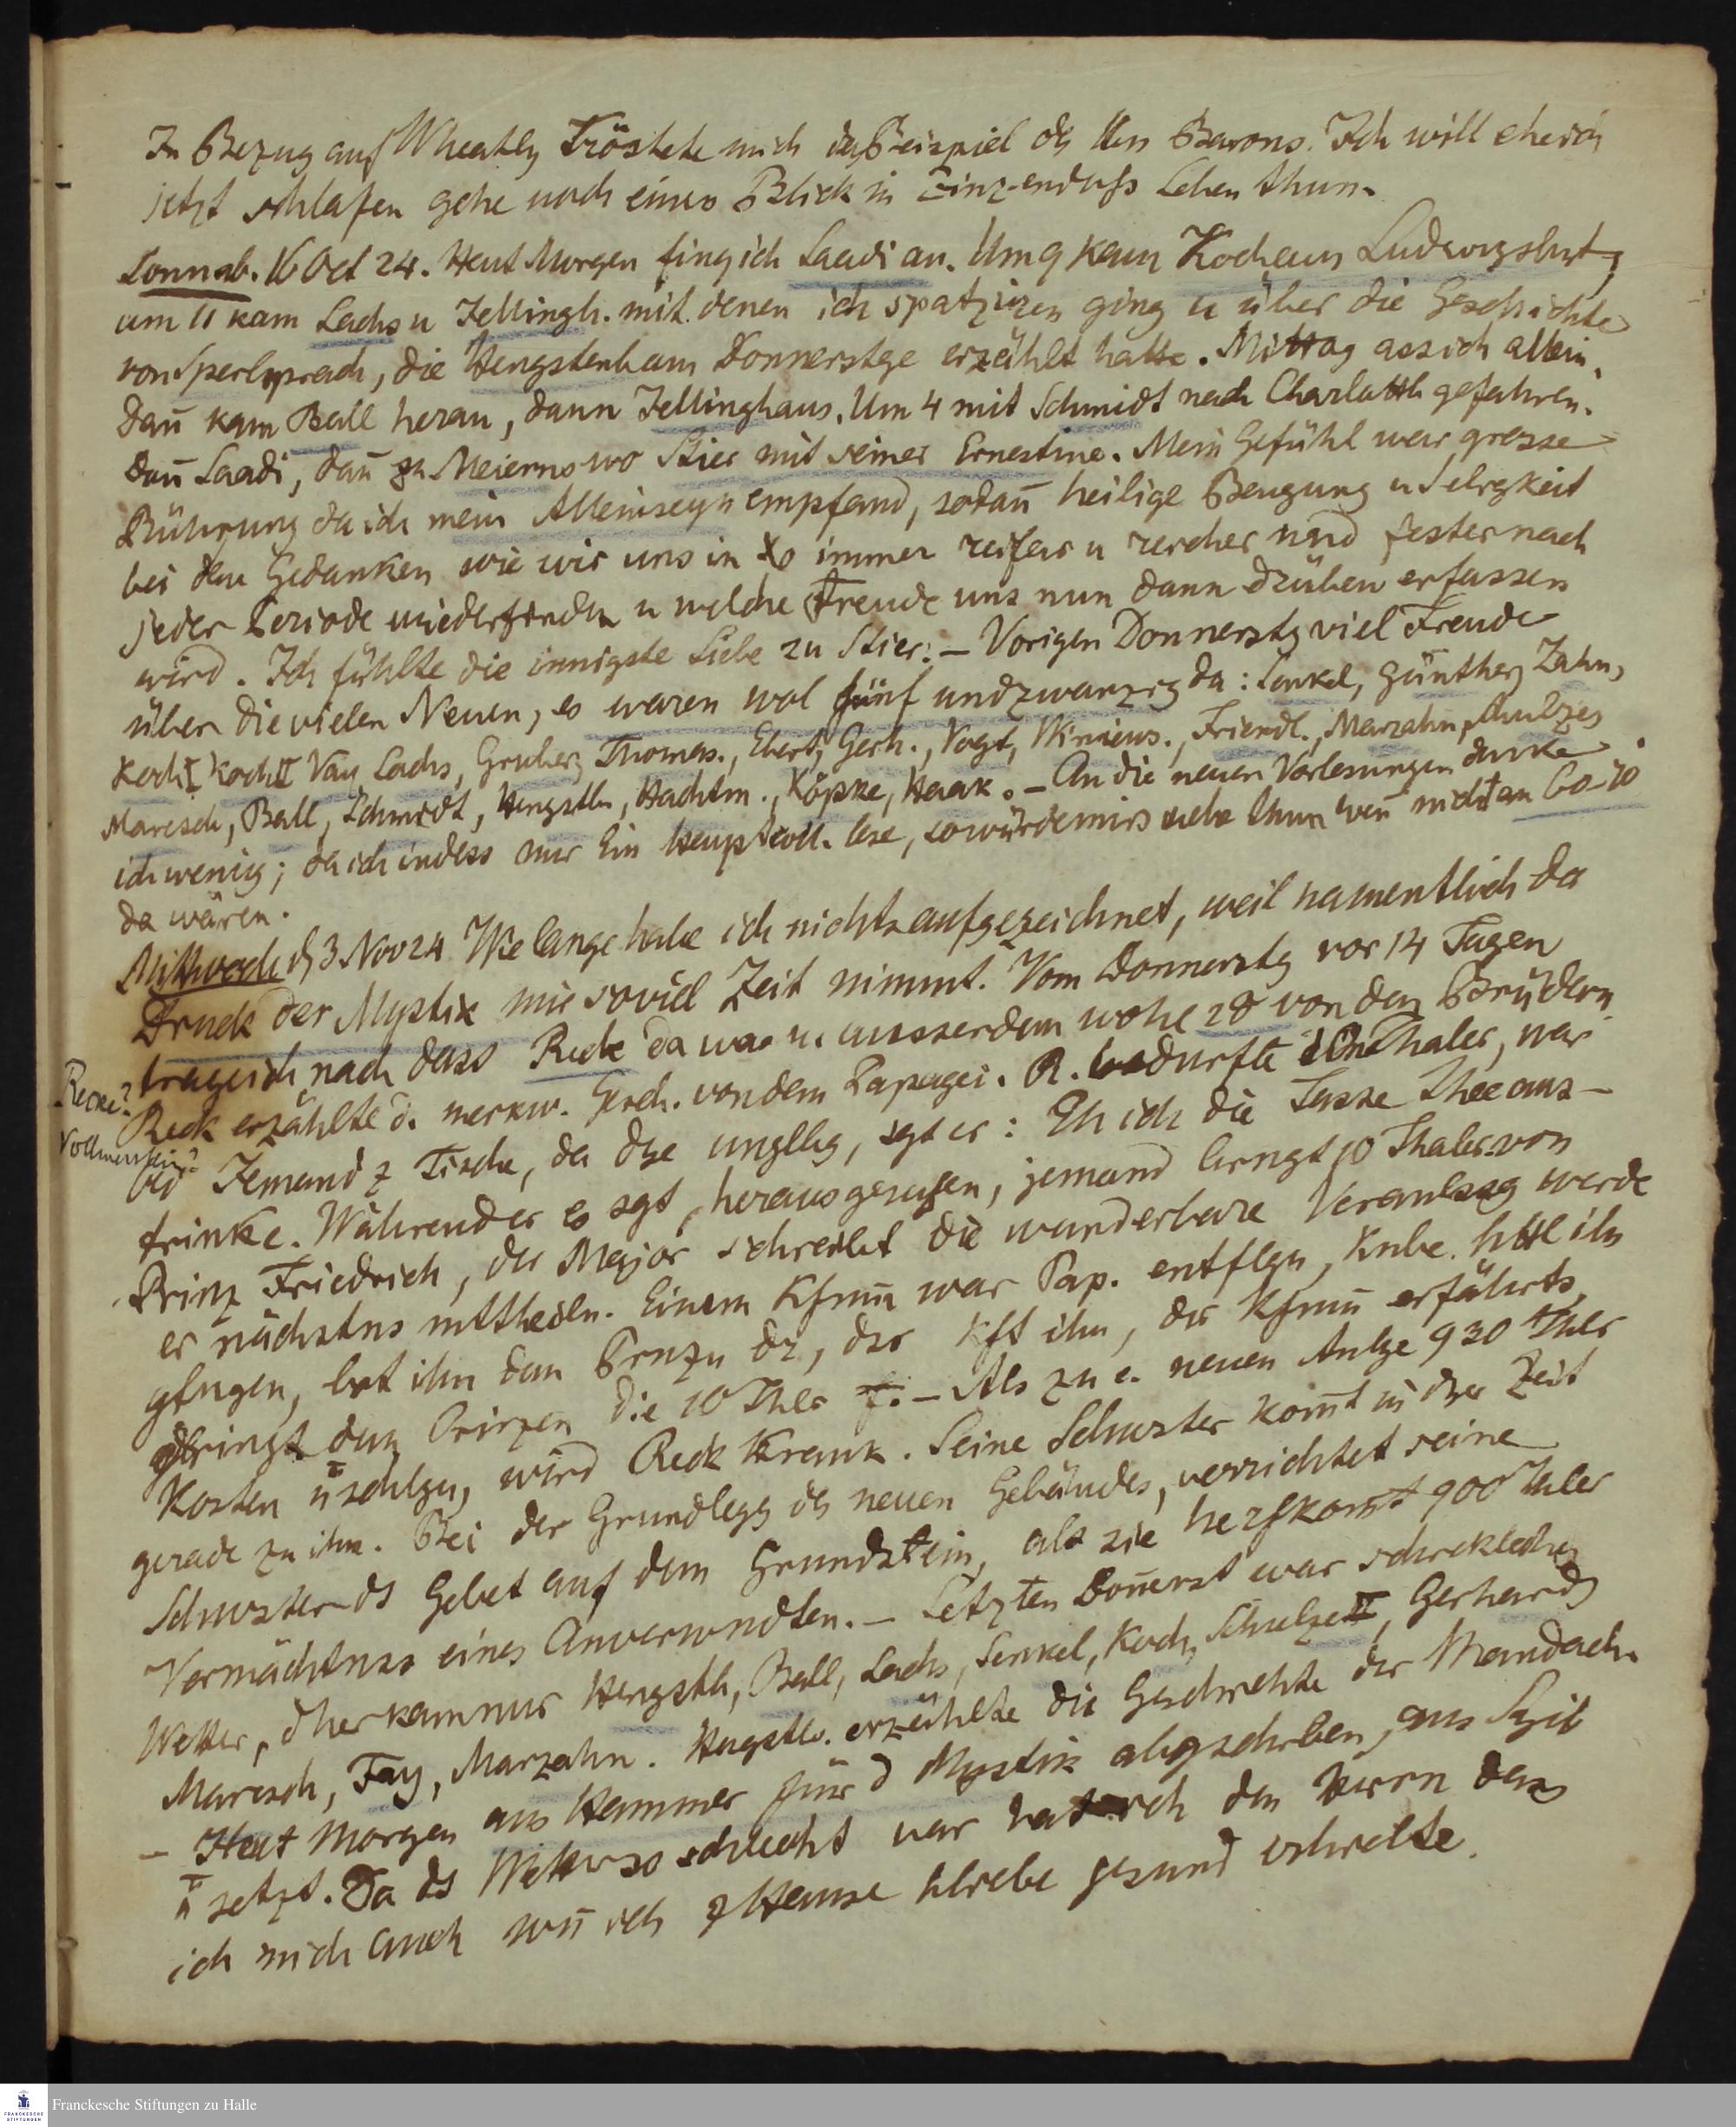 In Bezug auf Wheatly Tröstete mich das Beispiel ds Barons. Ich will eheich
jetzt schlafen gehe noch einen Blick in Zinzendufs Leben thun.
Sonnab. 16 Oct 24. Heut Morgen fing ich Saadi an. Um 9 kam Koch aus Ludwigslust,
um 11 kam Lachs u Jellingh. mit denen ich spatziren ging u über die Geschichte
von, die Hengstenb am Donnerstge erzählt hatte. Mittag ass ich allein,
dan̄ kam Ball heran, dann Jellinghaus. Um 4 mit Schmidt nach Charlottb gefahren.
dan̄ Saadi, dan̄ zu Meierns wo Stier mit seiner Ernestine. Mein Gefühl war grosse
Rührung da ich mein Alleinseyn empfand, sodan̄ heilige Beugung u Seligkeit
bei dem Gedanken wie wir uns in Xo immer reifer u reicher und fester nach
jeder Periode wiederfinden u welche Freude uns nun dann drüben erfassen
wird. Ich fühlte die innigste Liebe zu Stier. – Vorigen Donnerstg viel Freude
über die vielen Neuen, es waren wol fünf und zwanzig da: Senkel, Günther, Zahn,
Koch I Koch II Van Lachs, Gruber, Thomas., Ebert, Gerh., Vogt,, Friendl., Marzahn, Schulzes
Maresch, Ball, Schmidt, Hengstb, Hachtm., Köpke, Haak. – An die neuen Vorlesungen denke
ich wenig; da ich indess nur Ein Hauptcoll. lese, so würde mirs wehe thun wen̄ nicht an 60–70
da wären.
Mittwoch d 3 Nov 24 Wie lange habe ich nichts aufgezeichnet, weil namentlich da
Druck der Mystik mir soviel Zeit nimmt. Vom Donnerstg vor 14 Tagen
trage ich nach dass Reck da war u. ausserdem wohl 28 von den Brüdern
Recke?
Reck erzählte d. merkw. Gesch. von dem Papagei. R. bedurfte 10 Thaler, war
Vollmerstein?
bei Jemand z Tische, da dse ungllbg, sgt er: Eh ich die Tasse Thee aus-
trinke. Während er es sgt, herausgerufen, jemand brngt 10 Thaler von
Prinz Friedrich, der Major schreibt die wunderbare Veranlssg werde
er nächstns mttheiln. Einem Kfman̄ war Pap. entflgn, Knbe. httl ihn
gfngen, bot ihn dem Prnzn dr, dsr kft ihn, der Kfman̄ erfährts,
dringt dem Prinzen die 10 Thlr z. – Als zu e. neuen Anlge 930 Thlr
Kosten, wird Reck Krank. Seine Schwster kom̄t in dser Zeit
gerade zu ihm. Bei der Grundlegg ds neuen Gebäudes, verrichtet seine
Schwster ds Gebet auf dem Grundstein, als sie herfkom̄t 900 Thler
Vermächtnss eines Anverwndten. – Letzten Don̄erst war schreklches
Wetter, dher kam nur Hengstb, Ball, Lachs, Senkel, Koch, Schulze II, Gerhard,
Maresch, Fay, Marzahn. Hngstb. erzählte die Geschichte der Mandach.
– Heut Morgen aus Hammer für d Mystik abgschrben, aus
setzt. Da ds Wetter so schlecht war bat ich den Herrn dass
ich mich auch wen̄ ich z Hause bliebe gesund erhielte.
Franckesche Stiftungen zu Halle